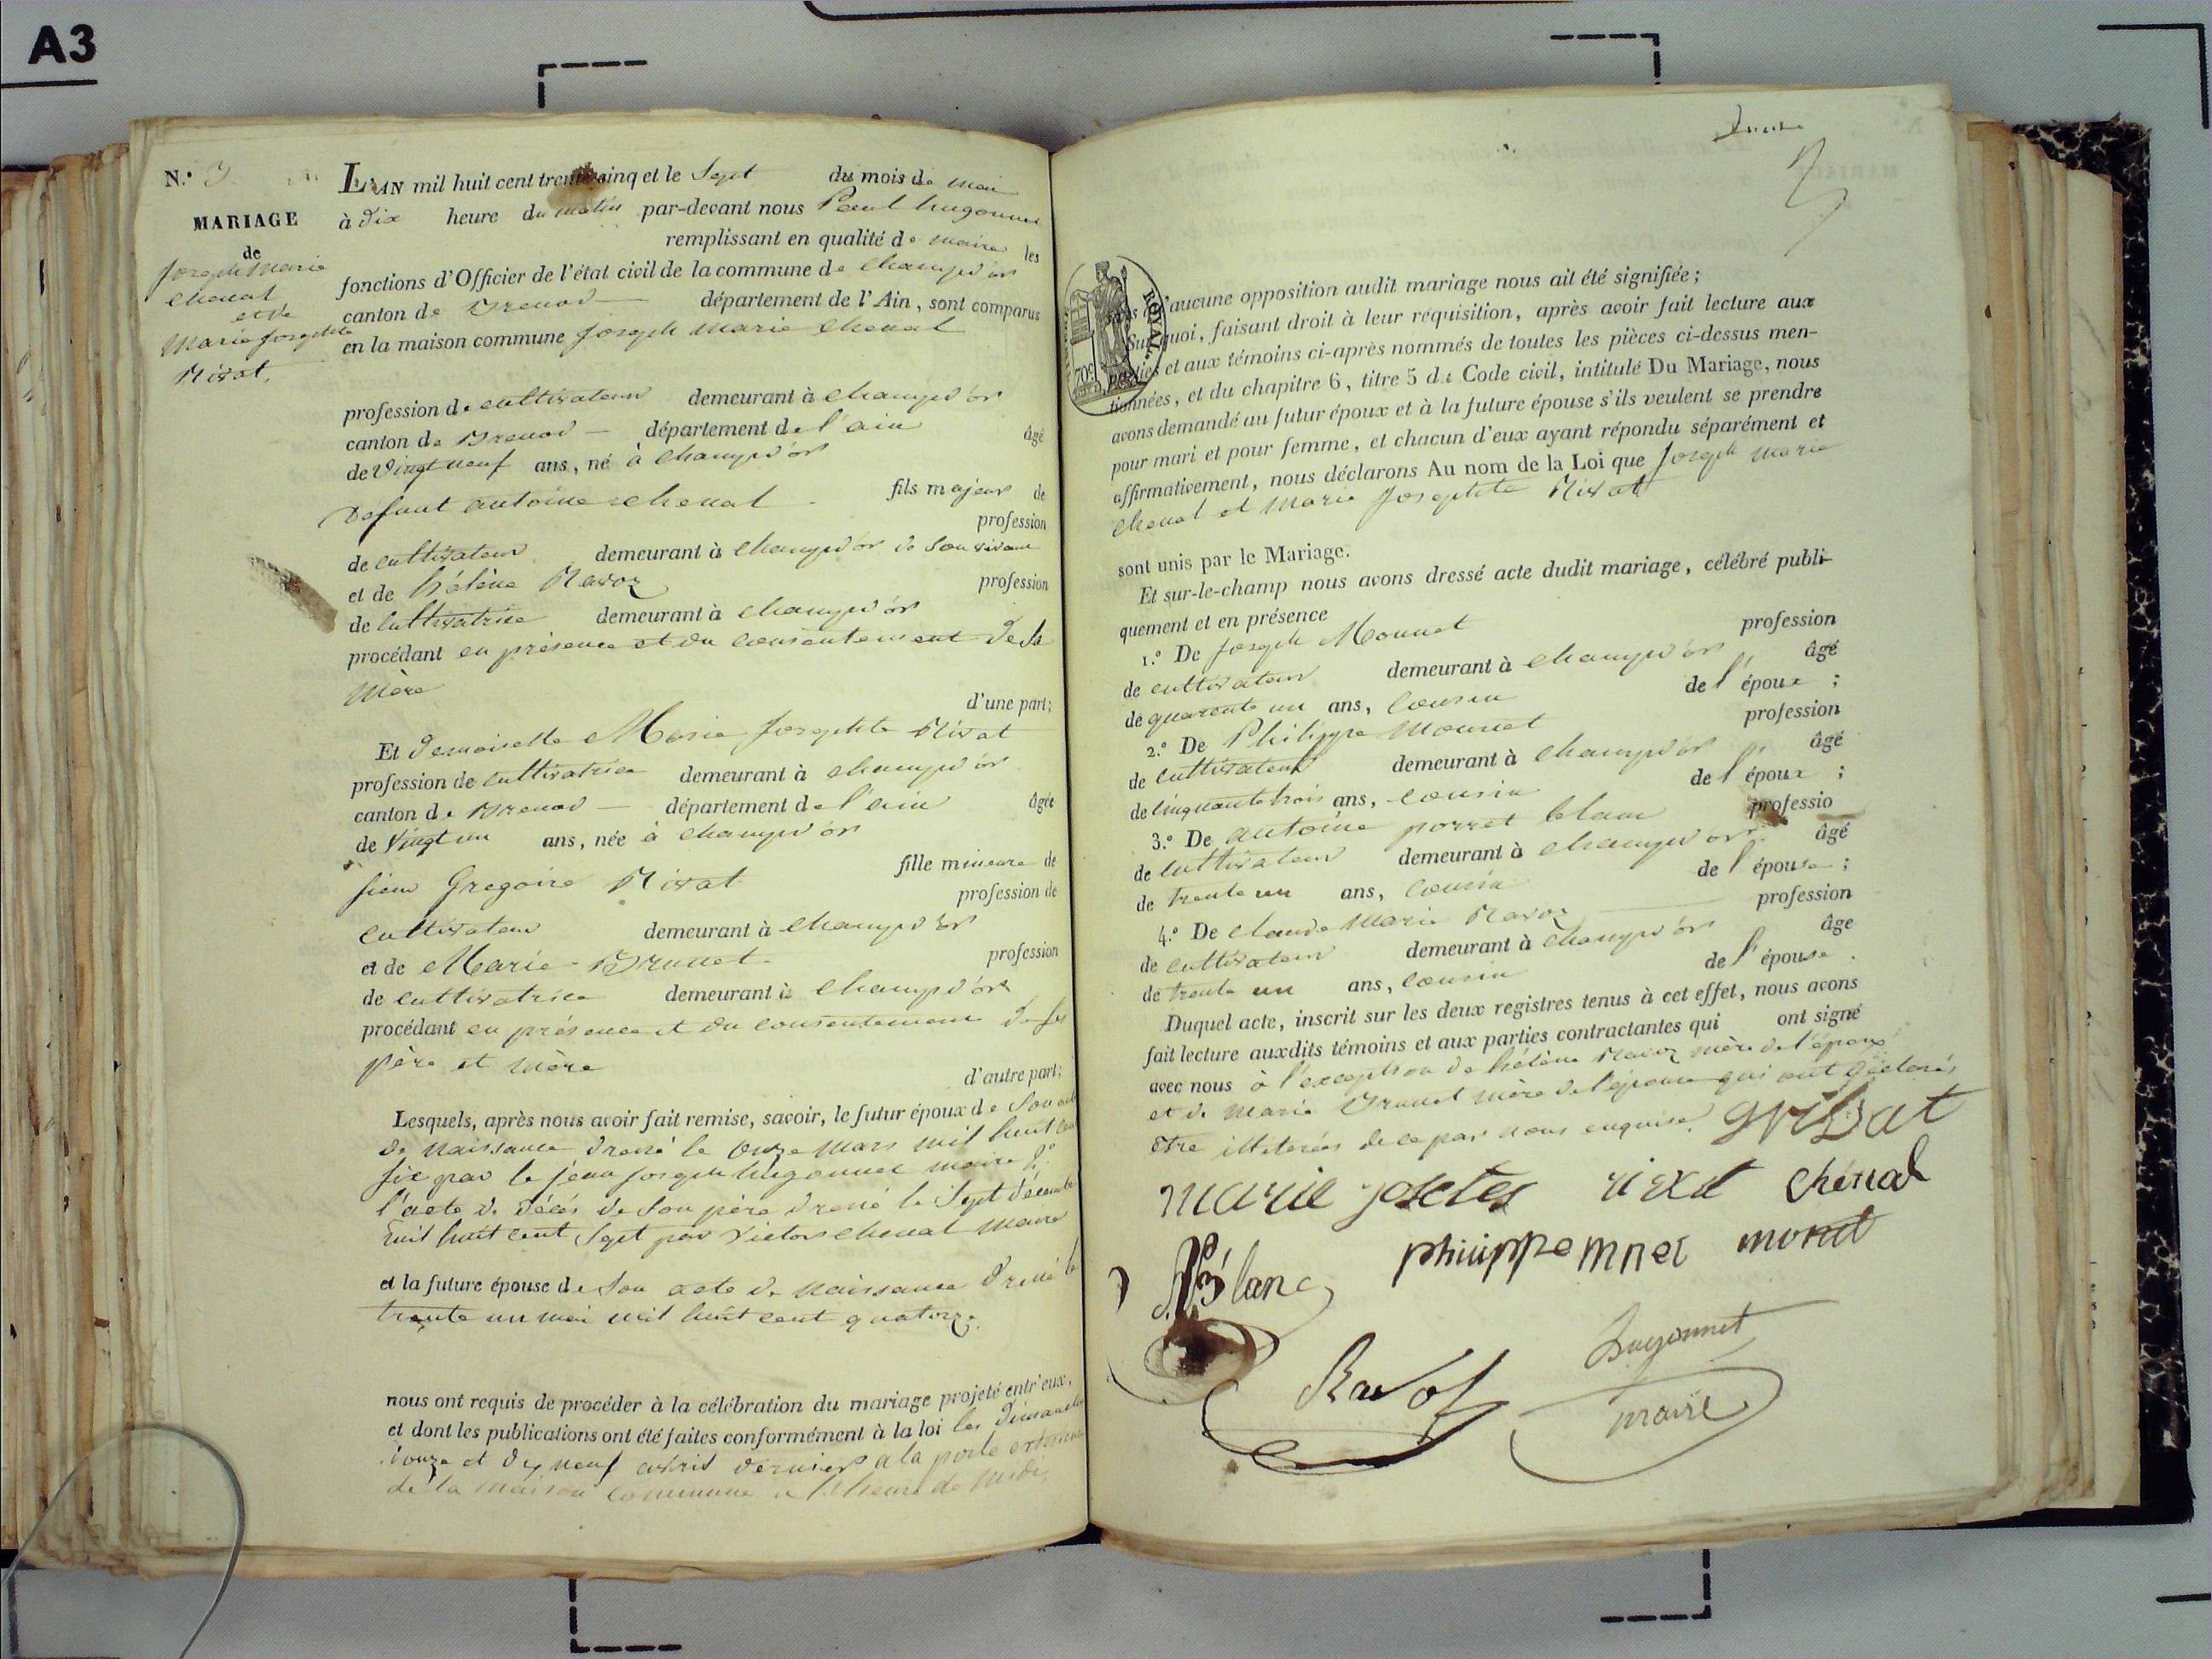 A3
N.° 3
MARIAGE
de
Joseph Marie
Chenal
et de
Marie Josephte
Rivat.
L'AN mil huit cent trente cinq et le Sept du mois de mai
à dix heure du matin par-devant nous Paul hugonnet
remplissant en qualité de maire les
fonctions d'Officier de l'état civil de la commune de Champd'or
canton de Brenod département de l'Ain, sont comparus
en la maison commune Joseph Marie Chenal
profession de cultivateur demeurant à Champd'or
canton de Brenod département de l'ain âgé
de vingt neuf ans, né à Champd'or
fils majeur de
defunt antoine Chenal profession
de cultivateur demeurant à Champd'or de son vivant
et de hélène Ravoz profession
de Cultivatrice demeurant à Champd'or
procédant en présence et du consentement de sa
mère
d'une part;
Et demoiselle Marie Josephte Rivat
profession de cultivatrice demeurant à Champd'or
canton de Brenod département de l'ain âgée
de vingt un ans, née à Champd'or
fille mineure de
sieur Gregoire Rivat profession de
Cultivateur demeurant à Champd'or
et de Marie Brunet profession
de cultivatrice demeurant à Champd'or
procédant en présence et du consentement de ses
père et mère
d'autre part;
Lesquels, après nous avoir fait remise, savoir, le futur époux de Son acte
de naissance dressé le onze mars mil huit cent
six par le jean Joseph hugonnet maire 2.°
l'acte de décès de son père dressé le Sept décembre
mil huit cent Sept par Victor Chenal maire
et la future épouse de Son acte de naissance dressé le
trente un mai mil huit cent quatorze.
nous ont requis de procéder à la célébration du mariage projeté entr'eux,
et dont les publications ont été faites conformément à la loi les dimanches
douze et dix neuf avril dernier a la porte extérieure
de la maison commune a l'heure de midi,
ROYAL
70c
sans qu'aucune opposition audit mariage nous ait été signifiée;
Sur quoi, faisant droit à leur réquisition, après avoir fait lecture aux
parties et aux témoins ci-après nommés de toutes les pièces ci-dessus men-
tionnées, et du chapitre 6, titre 5 du Code civil, intitulé Du Mariage, nous
avons demandé au futur époux et à la future épouse s'ils veulent se prendre
pour mari et pour femme, et chacun d'eux ayant répondu séparément et
affirmativement, nous déclarons Au nom de la Loi que Joseph Marie
Chenal et Marie Josephte Rivat
sont unis par le Mariage.
Et sur-le-champ nous avons dressé acte dudit mariage, célébré publi-
quement et en présence
1.° De Joseph Monnet profession
de cultivateur demeurant à Champd'or âgé
de quarante un ans, Cousin de l'époux ;
2.° De Philippe Monnet profession
de Cultivateur demeurant à Champd'or âgé
de Cinquante trois ans, Cousin de l'époux ;
3.° De antoine porret blanc professio
de Cultivateur demeurant à Champd'or âgé
de trente un ans, Cousin de l'épouse ;
4.° De Claude Marie Ravoz profession
de cultivateur demeurant à Champd'or âge
de trente un ans, Cousin de l'épouse.
Duquel acte, inscrit sur les deux registres tenus à cet effet, nous avons
fait lecture auxdits témoins et aux parties contractantes qui ont signé
avec nous à l'exception de hélène Ravoz mère de l'époux
et de Marie Brunet mère de l'épouse qui ont déclarés
être illiterées de ce par nous enquises.
marie Chénal
philippe mnet
Blanc
Ravoz
hugonnet
maire